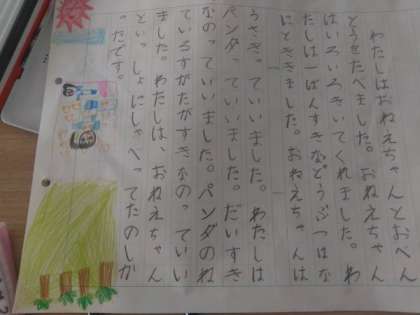 わたしはおねえちゃんとおべん
とうをたべました。おねえちゃん
はいろいろきいてくれました。わ
たしは一ばんすきなどうぶつはな
にとききました。おねえちゃんは
うさぎっていいました。わたしは
パンダっていいました。だいすき
なのっていいました。パンダのね
ているすがたがすきなのっていい
ました。わたしは、おねえちゃん
といっしょにしゃべってたのしか
ったです。